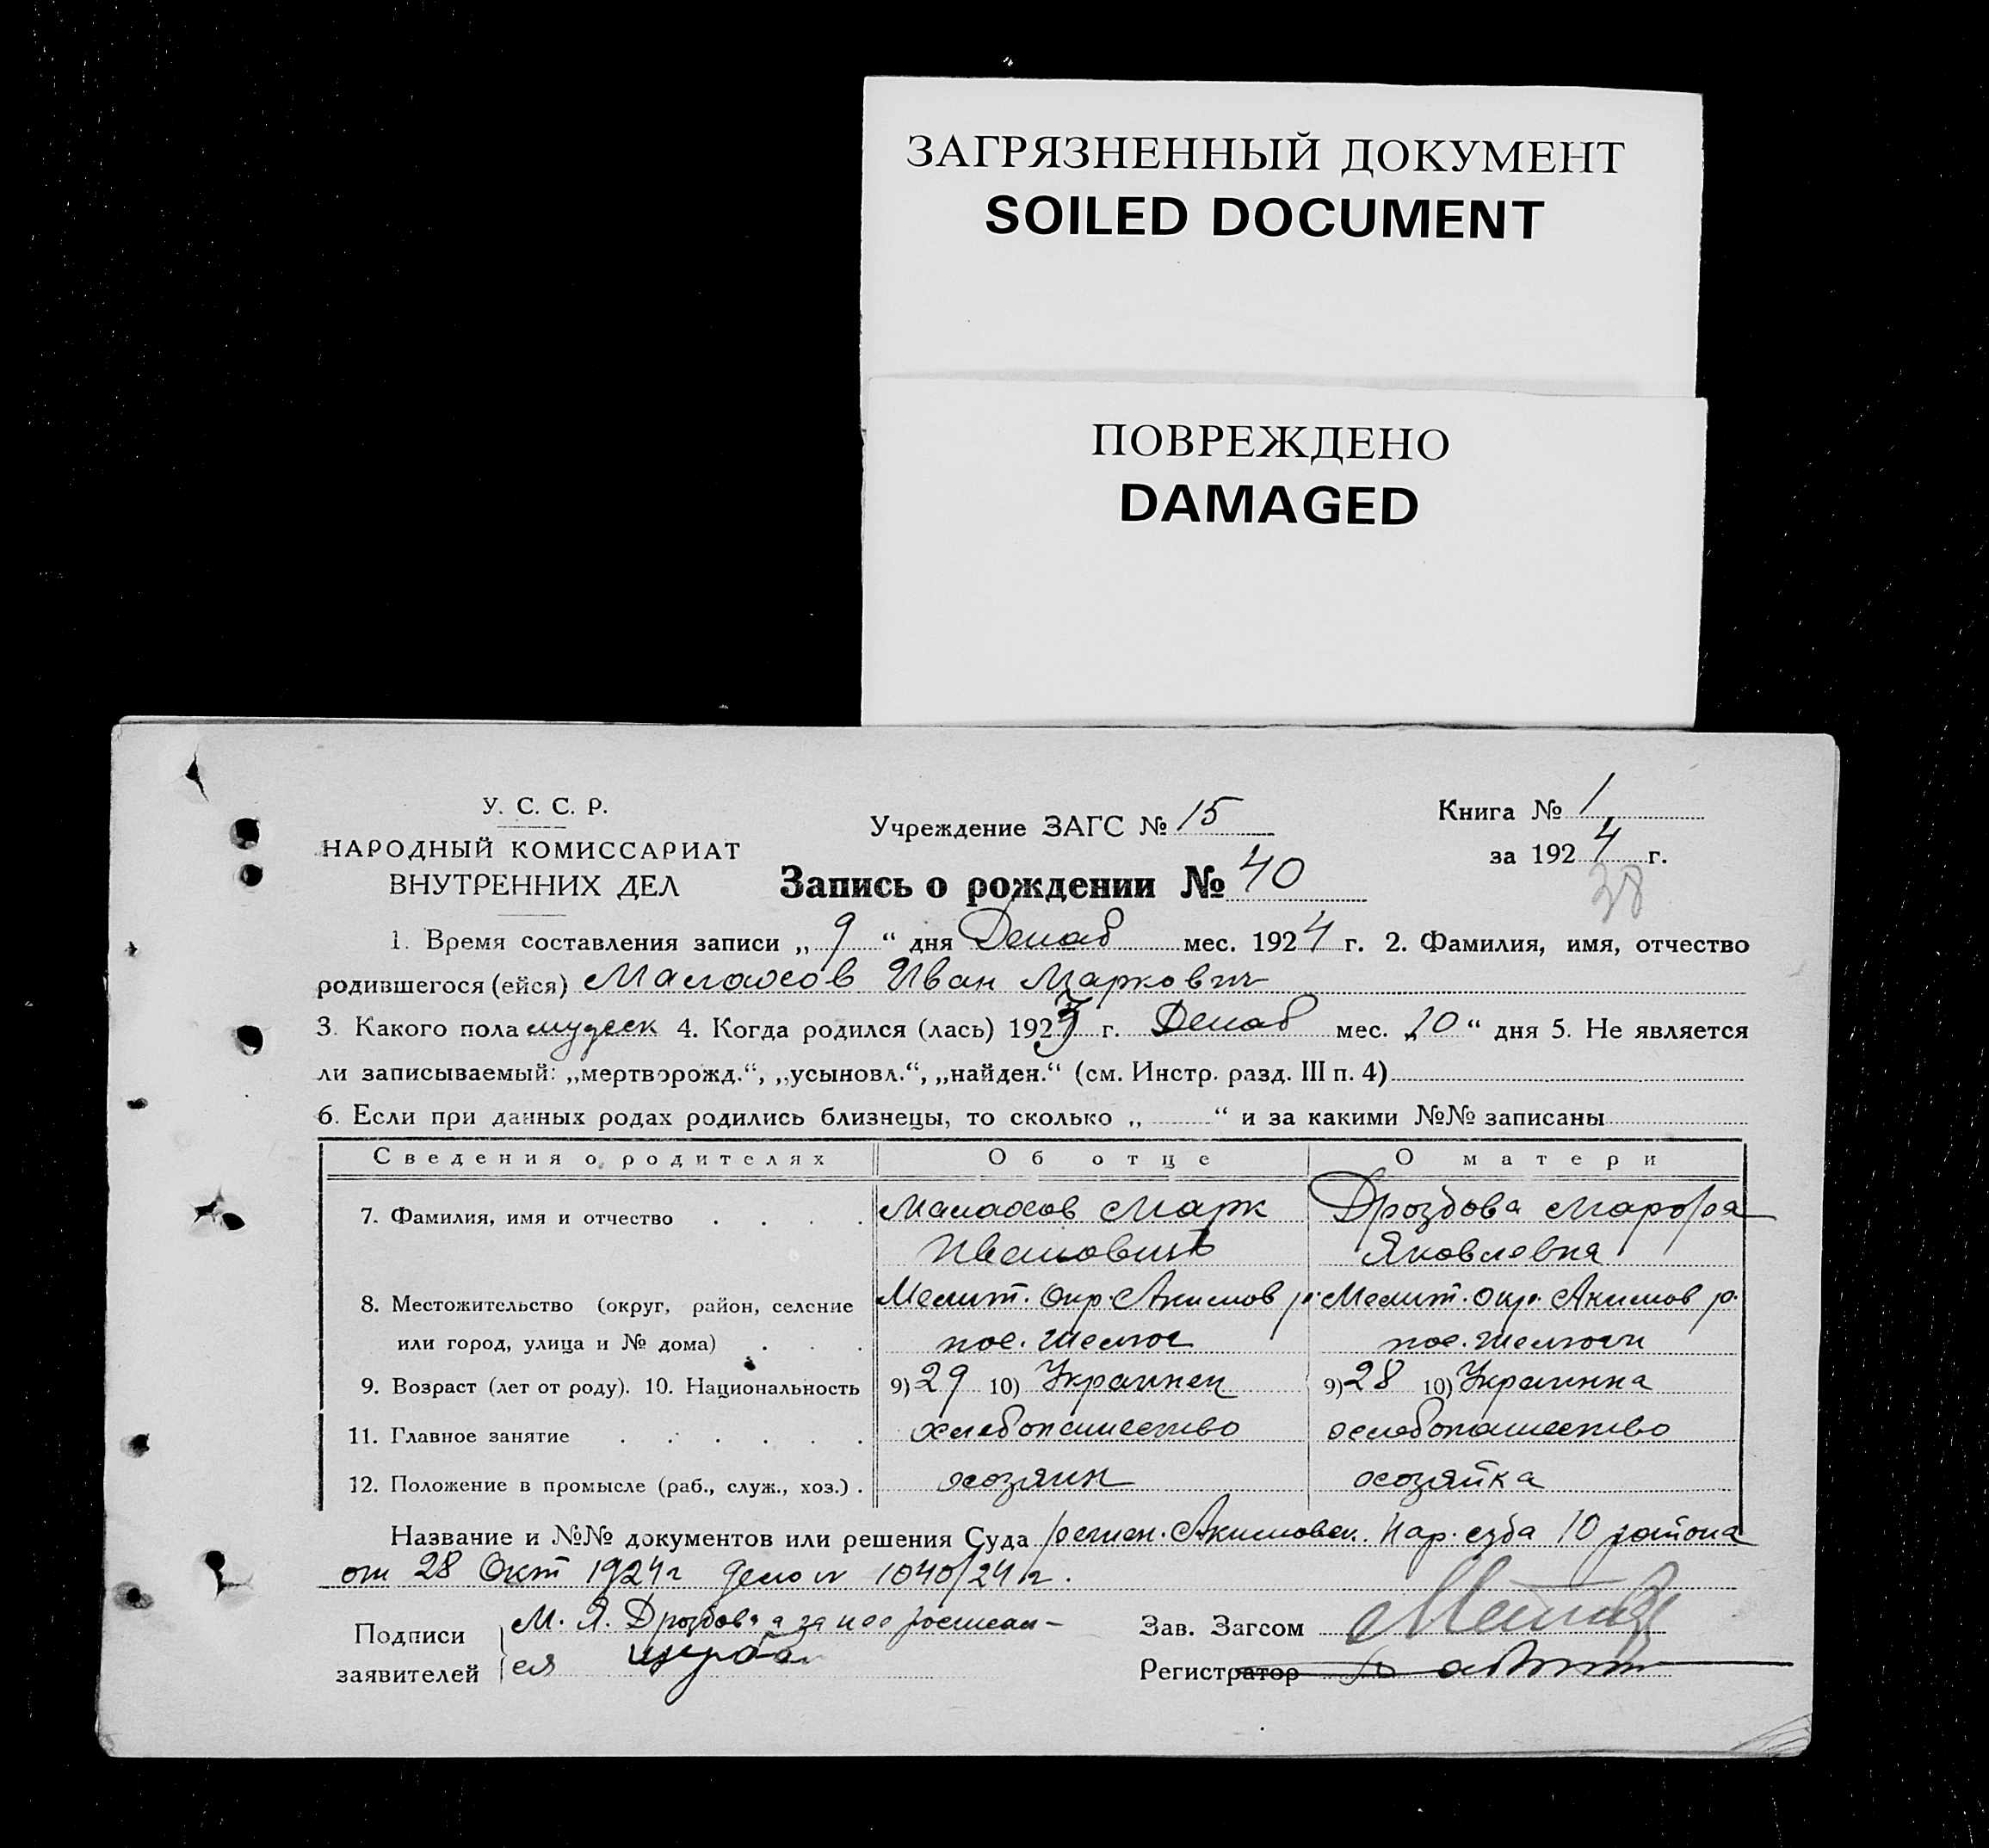 ЗАГРЯЗНЕННЫЙ ДОКУМЕНТ
SOILED DOCUMENT
ПОВРЕЖДЕНО
DAMAGED
У. С. С. Р.
НАРОДНЫЙ КОМИССАРИАТ
ВНУТРЕННИХ ДЕЛ
Учреждение ЗАГС № 15
Книга № 1
за 1924 г.
38
Запись о рождении № 40
1. Время составления записи „ 9 “ дня Декаб мес. 1924 г. 2. Фамилия, имя, отчество
родившегося (ейся) Малахов Иван Маркович
3. Какого пола мужск 4. Когда родился (лась) 1923 г. Декаб мес. „20“ дня 5. Не является
ли записываемый: „мертворожд.“, „усыновл.“, „найден.“ (см. Инстр. разд. III п. 4)
6. Если при данных родах родились близнецы, то сколько „ “ и за какими №№ записаны
Сведения о родителях Об отце О матери
7. Фамилия, имя и отчество Малахов Марк Дроздова Марфа
Ивановичъ Яковлевна
8. Местожительство (округ, район, селение Мелит. окр. Акимов р. Мелит. окр. Акимов р.
или город, улица и № дома) пос. пос.
9. Возраст (лет от роду). 10. Национальность 9) 29 10) Украинец 9) 28 10) Украинка
11. Главное занятие хлебопашество хлебопашество
12. Положение в промысле (раб., служ., хоз.) хозяин хозяйка
Название и №№ документов или решения Суда решен. Акимовск. Нар. суда 10 района
от 28 Окт 1924г дело № 1040/24 г.
Подписи М. Я. Дроздова а за нее росписал-
заявителей ся
Зав. Загсом
Регистратор